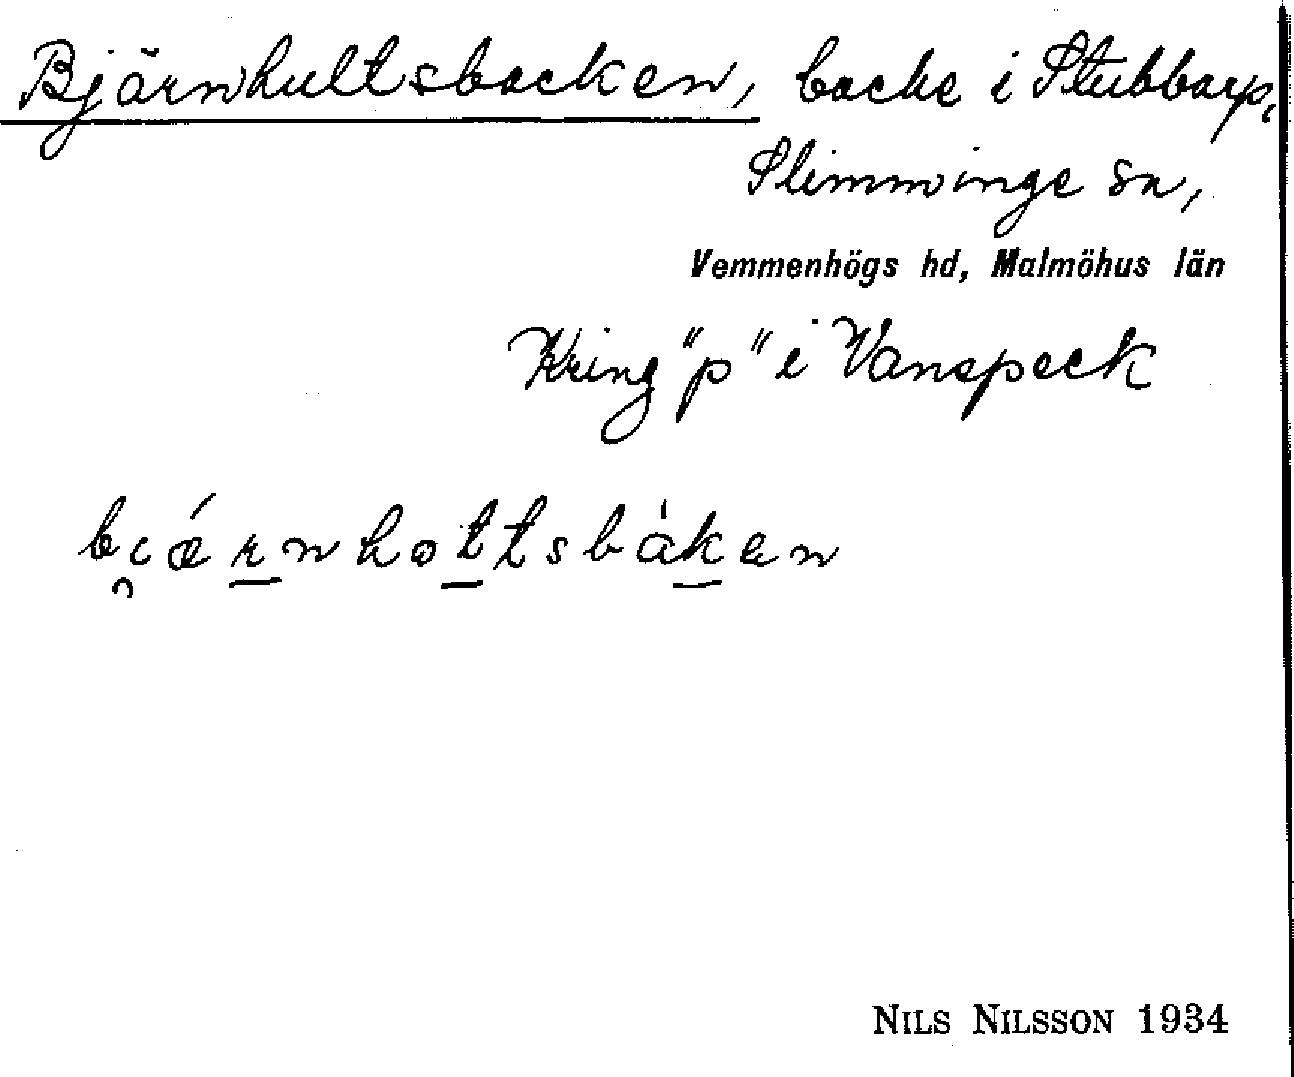 Björnhultsbacken, backe i Stubbarp,
Slimminge sn,
Vemmenhögs hd, Malmöhus län
Kring "p" i Vanspeck
bi̯ǽrnhottsbákan
NILS NILSSON 1934